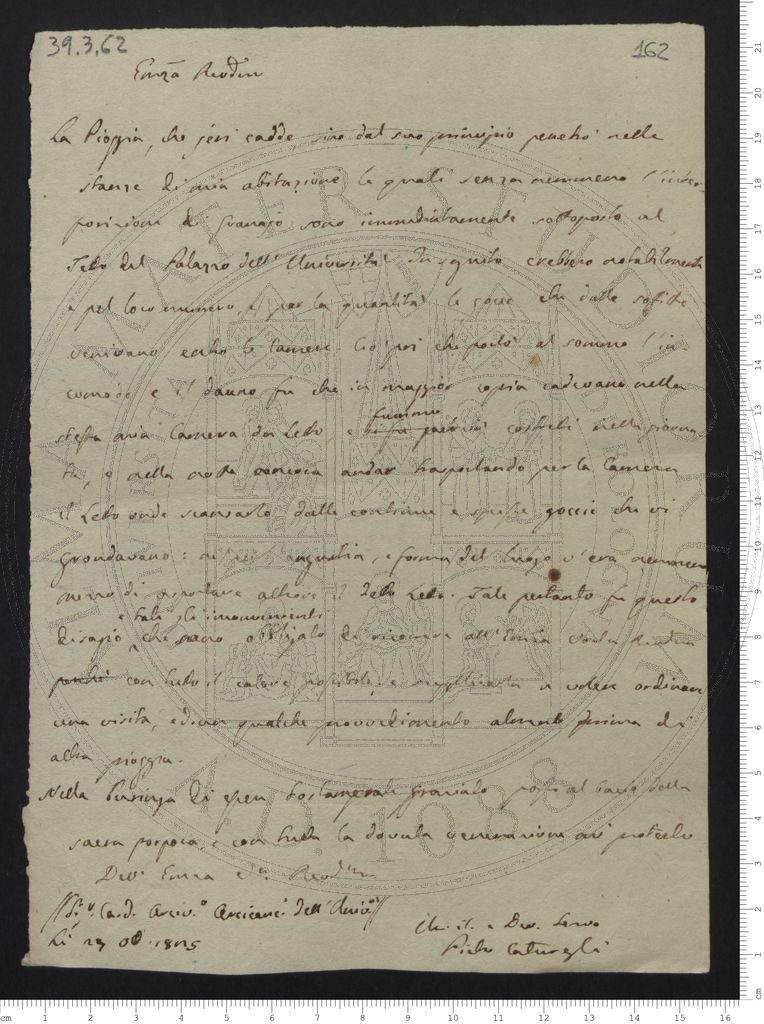 39.3.62
162
Emza Revdma
La Pioggia, che jeri cadde sino dal suo principio penetrò nelle
stanze di mia abitazione le quali senza nemmeno l'inter-
posizione di Granajo sono immediatamente sottoposte al
Tetto del Palazzo dell'Università. In seguito crebbero notabilmente
e pel loro numero, e per la quantità le gocce che dalle soffitte
venivano entro le Camere. Ciò poi che portò al sommo l'in-
comodo e il danno fu che in maggior copia cadevano nella
stessa mia Camera da Letto e
fummo
costretti nella giorna-
ta, e nella notte ancora andar trasportando per la Camera
il Letto onde scansarlo dalle continue e spesse goccie che vi
grondavano: nè per l'angustia, e forma del luogo v'era nemmeno
mezzo di asportare altrove il detto Letto. Tale pertanto fu questo
e tali gli inconvenienti
disagio che sono obbligato di ricorrere all'Emza Vostra Revdma
perchè con tutto il calore possibile, e supplicarla a volere ordinare
una visita, ed un qualche provvedimento almeno prima di
altra pioggia.
Nella lusinga di essere graziato passo al bacio della
sacra porpora, e con tutta la dovuta venerazione mi protesto
Dell' Emza V. Revdma
Sig. Card. Arciv.o Arcicanc. dell'Univ.
Li 29 Ott. 1825
Um. e Dev. Servo
Pietro Caturegli
ALMA MATER STUDIORUM
A.D. 1088